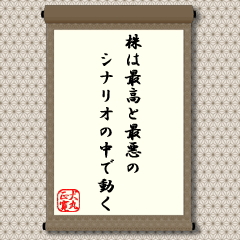 株は最高と最悪の
シナリオの中で動く